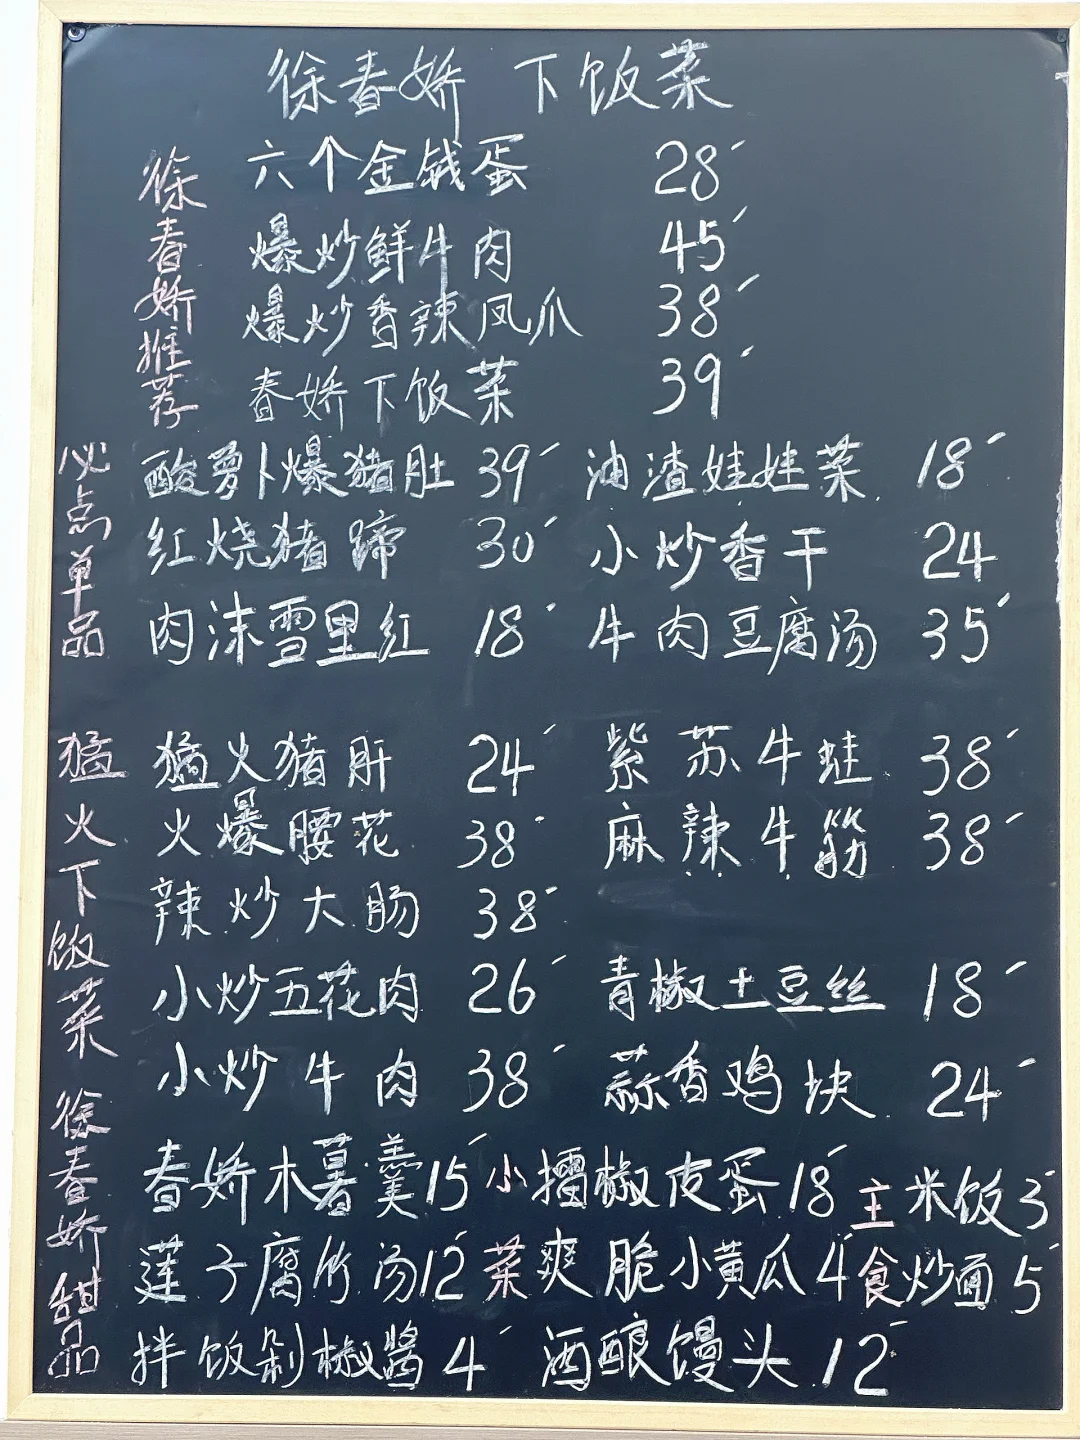 徐春娇 下饭菜
徐春娇推荐
六个金钱蛋 28
爆炒鲜牛肉 45
爆炒香辣凤爪 38
春娇下饭菜 39
必点单品
酸萝卜爆猪肚 39 油渣娃娃菜 18
红烧猪蹄 30 小炒香干 24
肉沫雪里红 18 牛肉豆腐汤 35
猛火下饭菜
猛火猪肝 24 紫苏牛蛙 38
火爆腰花 38 麻辣牛筋 38
辣炒大肠 38
小炒五花肉 26 青椒土豆丝 18
小炒牛肉 38 蒜香鸡块 24
徐春娇甜品
春娇木薯羹 15 小 擂椒皮蛋 18 主 米饭 3
莲子腐竹汤 12 菜 爽脆小黄瓜 4 食 炒面 5
拌饭剁椒酱 4 酒酿馒头 12